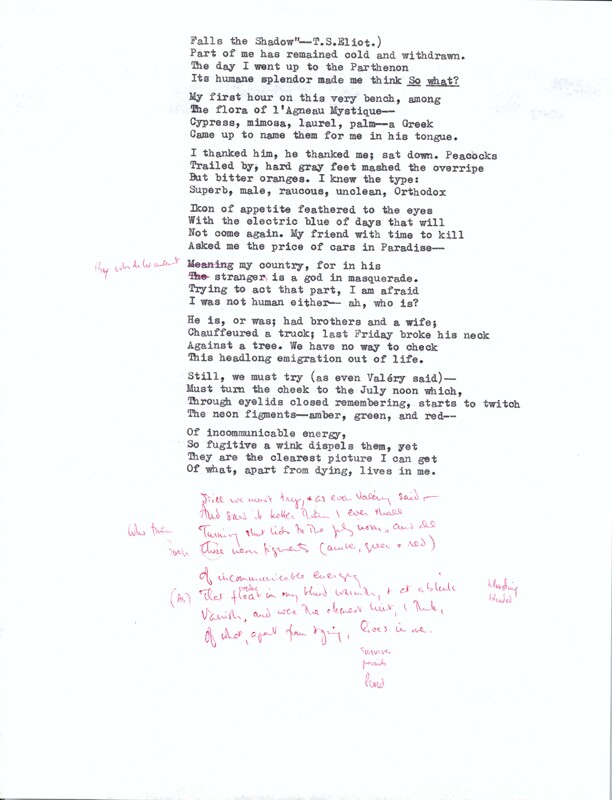 Falls the Shadow"--T.S.Eliot.)
Part of me has remained cold and withdrawn.
The day I went up to the Parthenon
Its humane splendor made me think So what?
My first hour on this very bench, among
The flora of l'Agneau Mystique--
Cypress, mimosa, laurel, palm--a Greek
Came up to name them for me in his tongue.
I thanked him, he thanked me; sat down. Peacocks
Trailed by, hard gray feet mashed the overripe
But bitter oranges. I knew the type:
Superb, male, raucous, unclean, Orthodox
Ikon of appetite feathered to the eyes
With the electric blue of days that will
Not come again. My friend with time to kill
Asked me the price of cars in Paradise--
By which he meant
Meaning my country, for in his
The stranger is a god in masquerade.
Trying to act that part, I am afraid
I was not human either-- ah, who is?
He is, or was; had brothers and a wife;
Chauffeured a truck; last Friday broke his neck
Against a tree. We have no way to check
This headlong emigration out of life.
Still, we must try (as even Valéry said)--
Must turn the cheek to the July noon which,
Through eyelids closed remembering, starts to twitch
The neon figments--amber, green, and red--
Of incommunicable energy,
So fugitive a wink dispels them, yet
They are the clearest picture I can get
Of what, apart from dying, lives in me.
Still we must try, as even Valéry said—
And said it better than I ever shall
Turning shut lids to the July noon, and all
Such
Those neon figments (amber, green + red)
Of incommunicable energy
(As) That float in my blind warmth, + at a blink
Vanish, and were the clearest hint, I think,
Of what, apart from dying, lives in me.